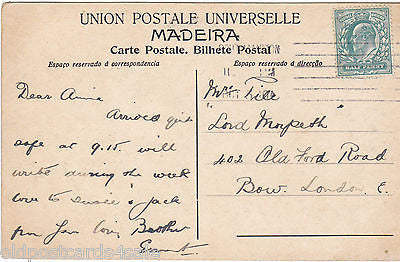 UNION POSTALE UNIVERSELLE
MADEIRA
Carte Postale. Bilhete Postal
Espaço reservado á correspondencia
Espaço reservado á direcção
Dear Annie
Arrived quite
safe at 9.15. will
write during the week
love to Susie & Jack
from your loving Brother
Ernest
Mrs Tice
"Lord Morpeth"
402 Old Ford Road
Bow. London. E.
oldpostcards4sale